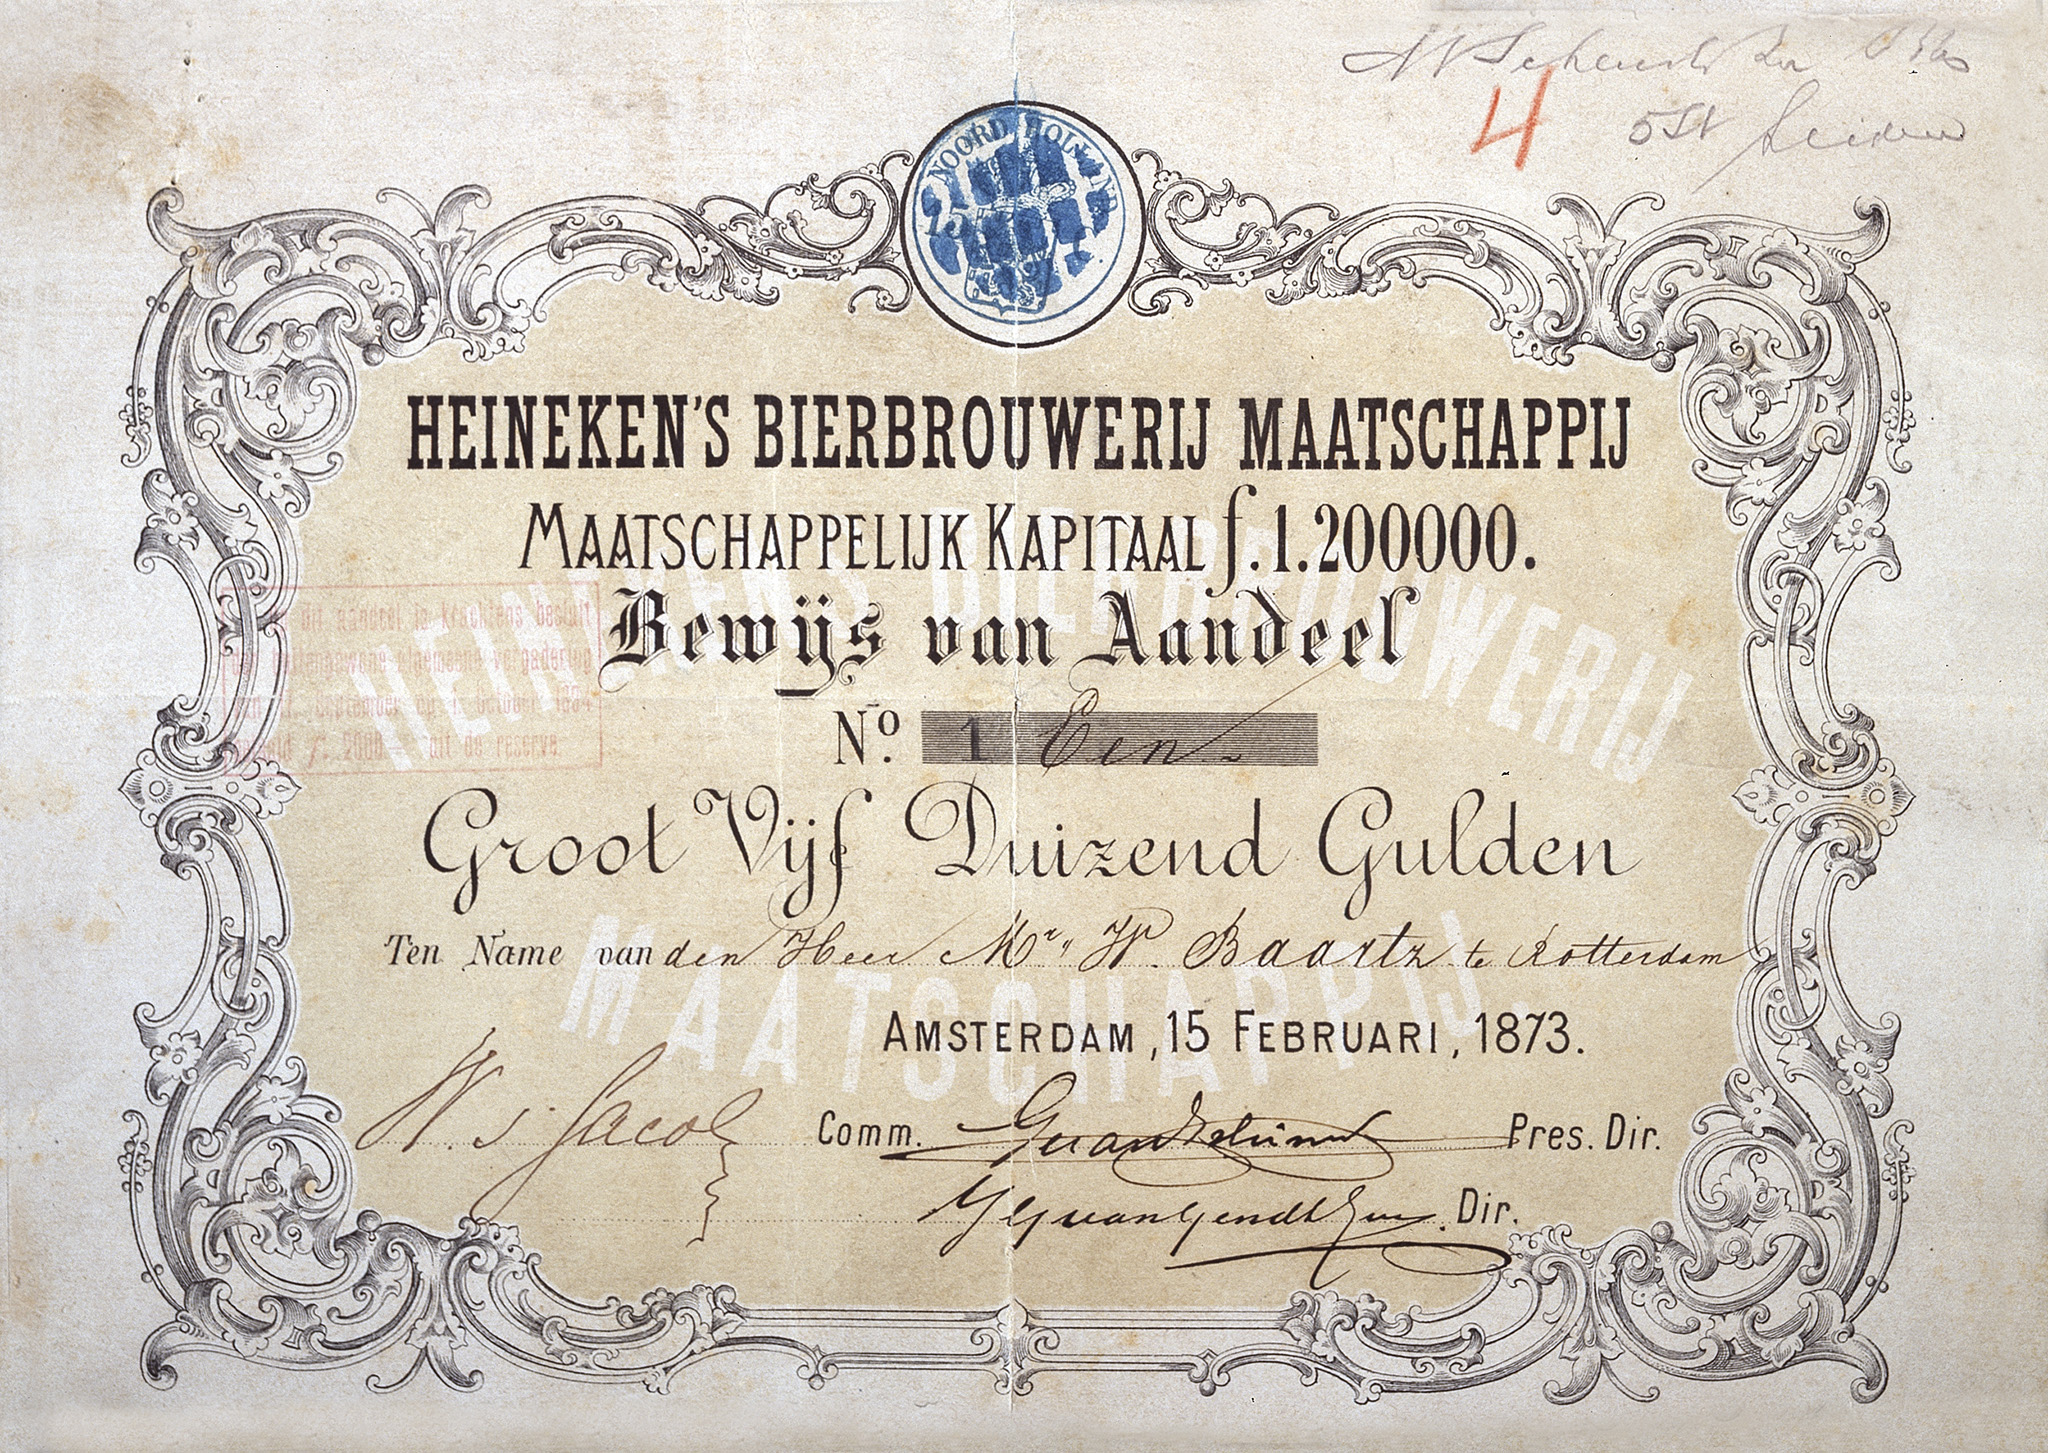 4
NOORD HOLLAND
15
HEINEKEN'S BIERBROUWERIJ MAATSCHAPPIJ
MAATSCHAPPELIJK KAPITAAL f. 1.200000.
Bewijs van Aandeel
Op dit aandeel is krachtens besluit
der buitengewone algemeene vergadering
van September op 1. October 1884
f. 2000.— uit de reserve
HEINEKENS BIERBROUWERIJ
No. 1 Een
Groot Vijf Duizend Gulden
Ten Name van den Heer Mr. W. Baartz te Rotterdam
MAATSCHAPPIJ.
AMSTERDAM, 15 FEBRUARI, 1873.
W. S. Jacob Comm. Pres. Dir.
Dir.